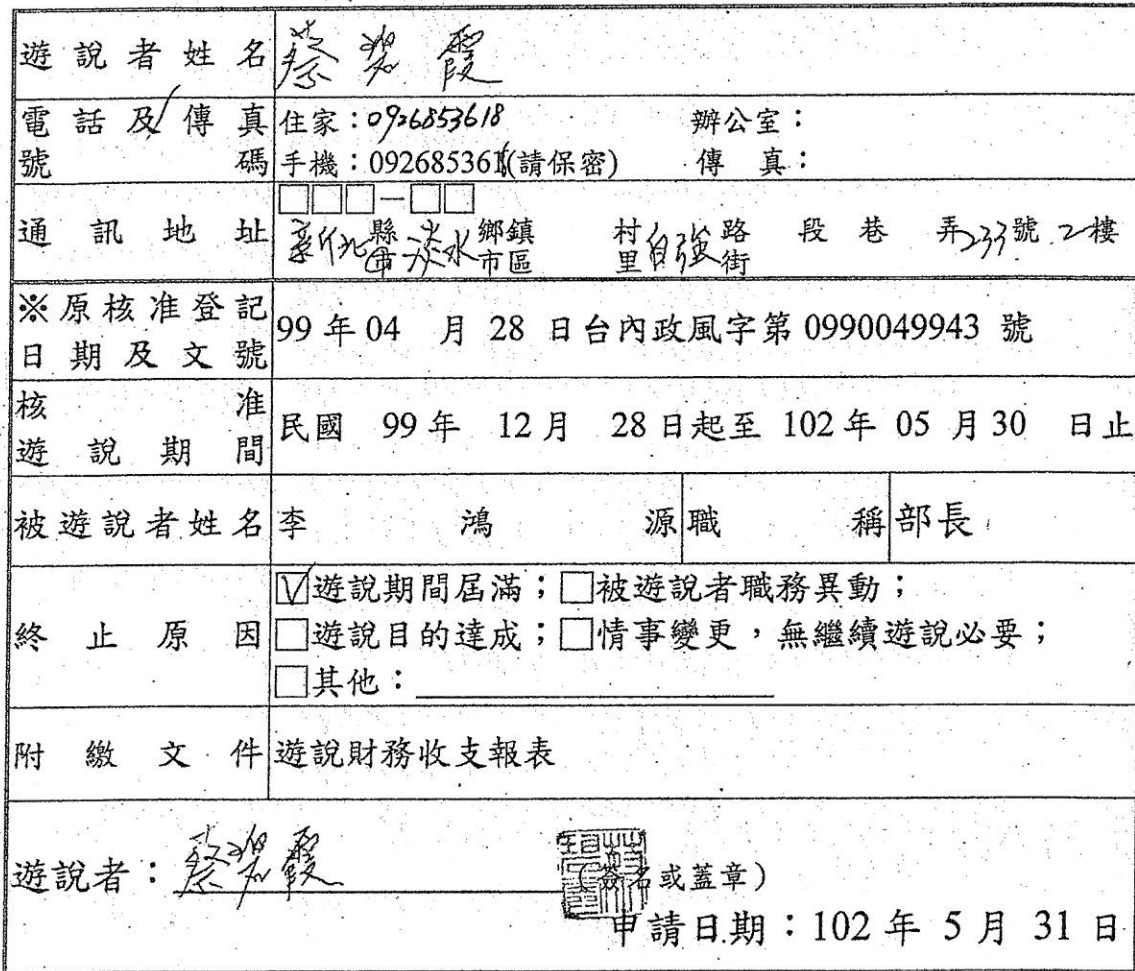 遊說者姓名 蔡碧霞
電話及傳真 住家：0926853618 辦公室：
號碼 手機：0926853618(請保密) 傳真：
□□□—□□
通訊地址 新北 縣市 淡水 鄉鎮市區 村里 自強 路街 段 巷 弄 233 號 2 樓
※原核准登記
日期及文號 99 年 04 月 28 日台內政風字第 0990049943 號
核准
遊說期間 民國 99 年 12 月 28 日起至 102 年 05 月 30 日止
被遊說者姓名 李鴻源 職稱 部長
☑遊說期間屆滿；□被遊說者職務異動；
終止原因 □遊說目的達成；□情事變更，無繼續遊說必要；
□其他：
附繳文件 遊說財務收支報表
遊說者：蔡碧霞 (簽名或蓋章)
申請日期：102 年 5 月 31 日